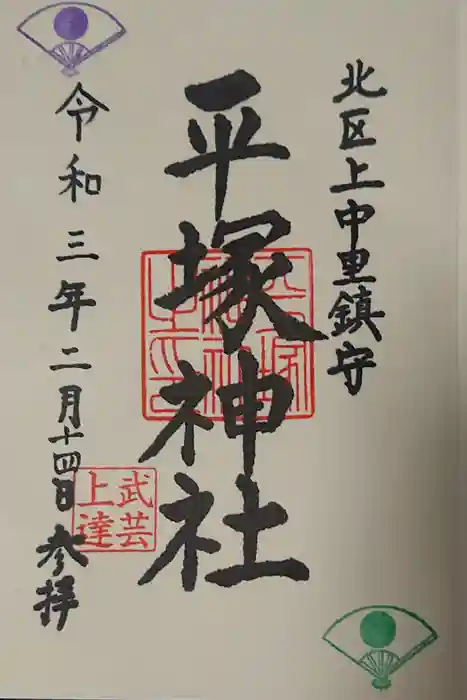 北区上中里鎮守
平塚神社
平塚神社之印
武芸
上達
令和三年二月十四日参拝